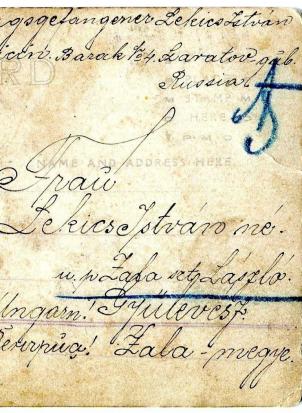 gsgefangener Lekics István
Barak № 4 Saratov gub.
Russia
NAME AND ADDRESS HERE.
Frau
Lekics István né.
u. p Zala sztg László.
Ungarn! Gyülevész.
Zala-megye.